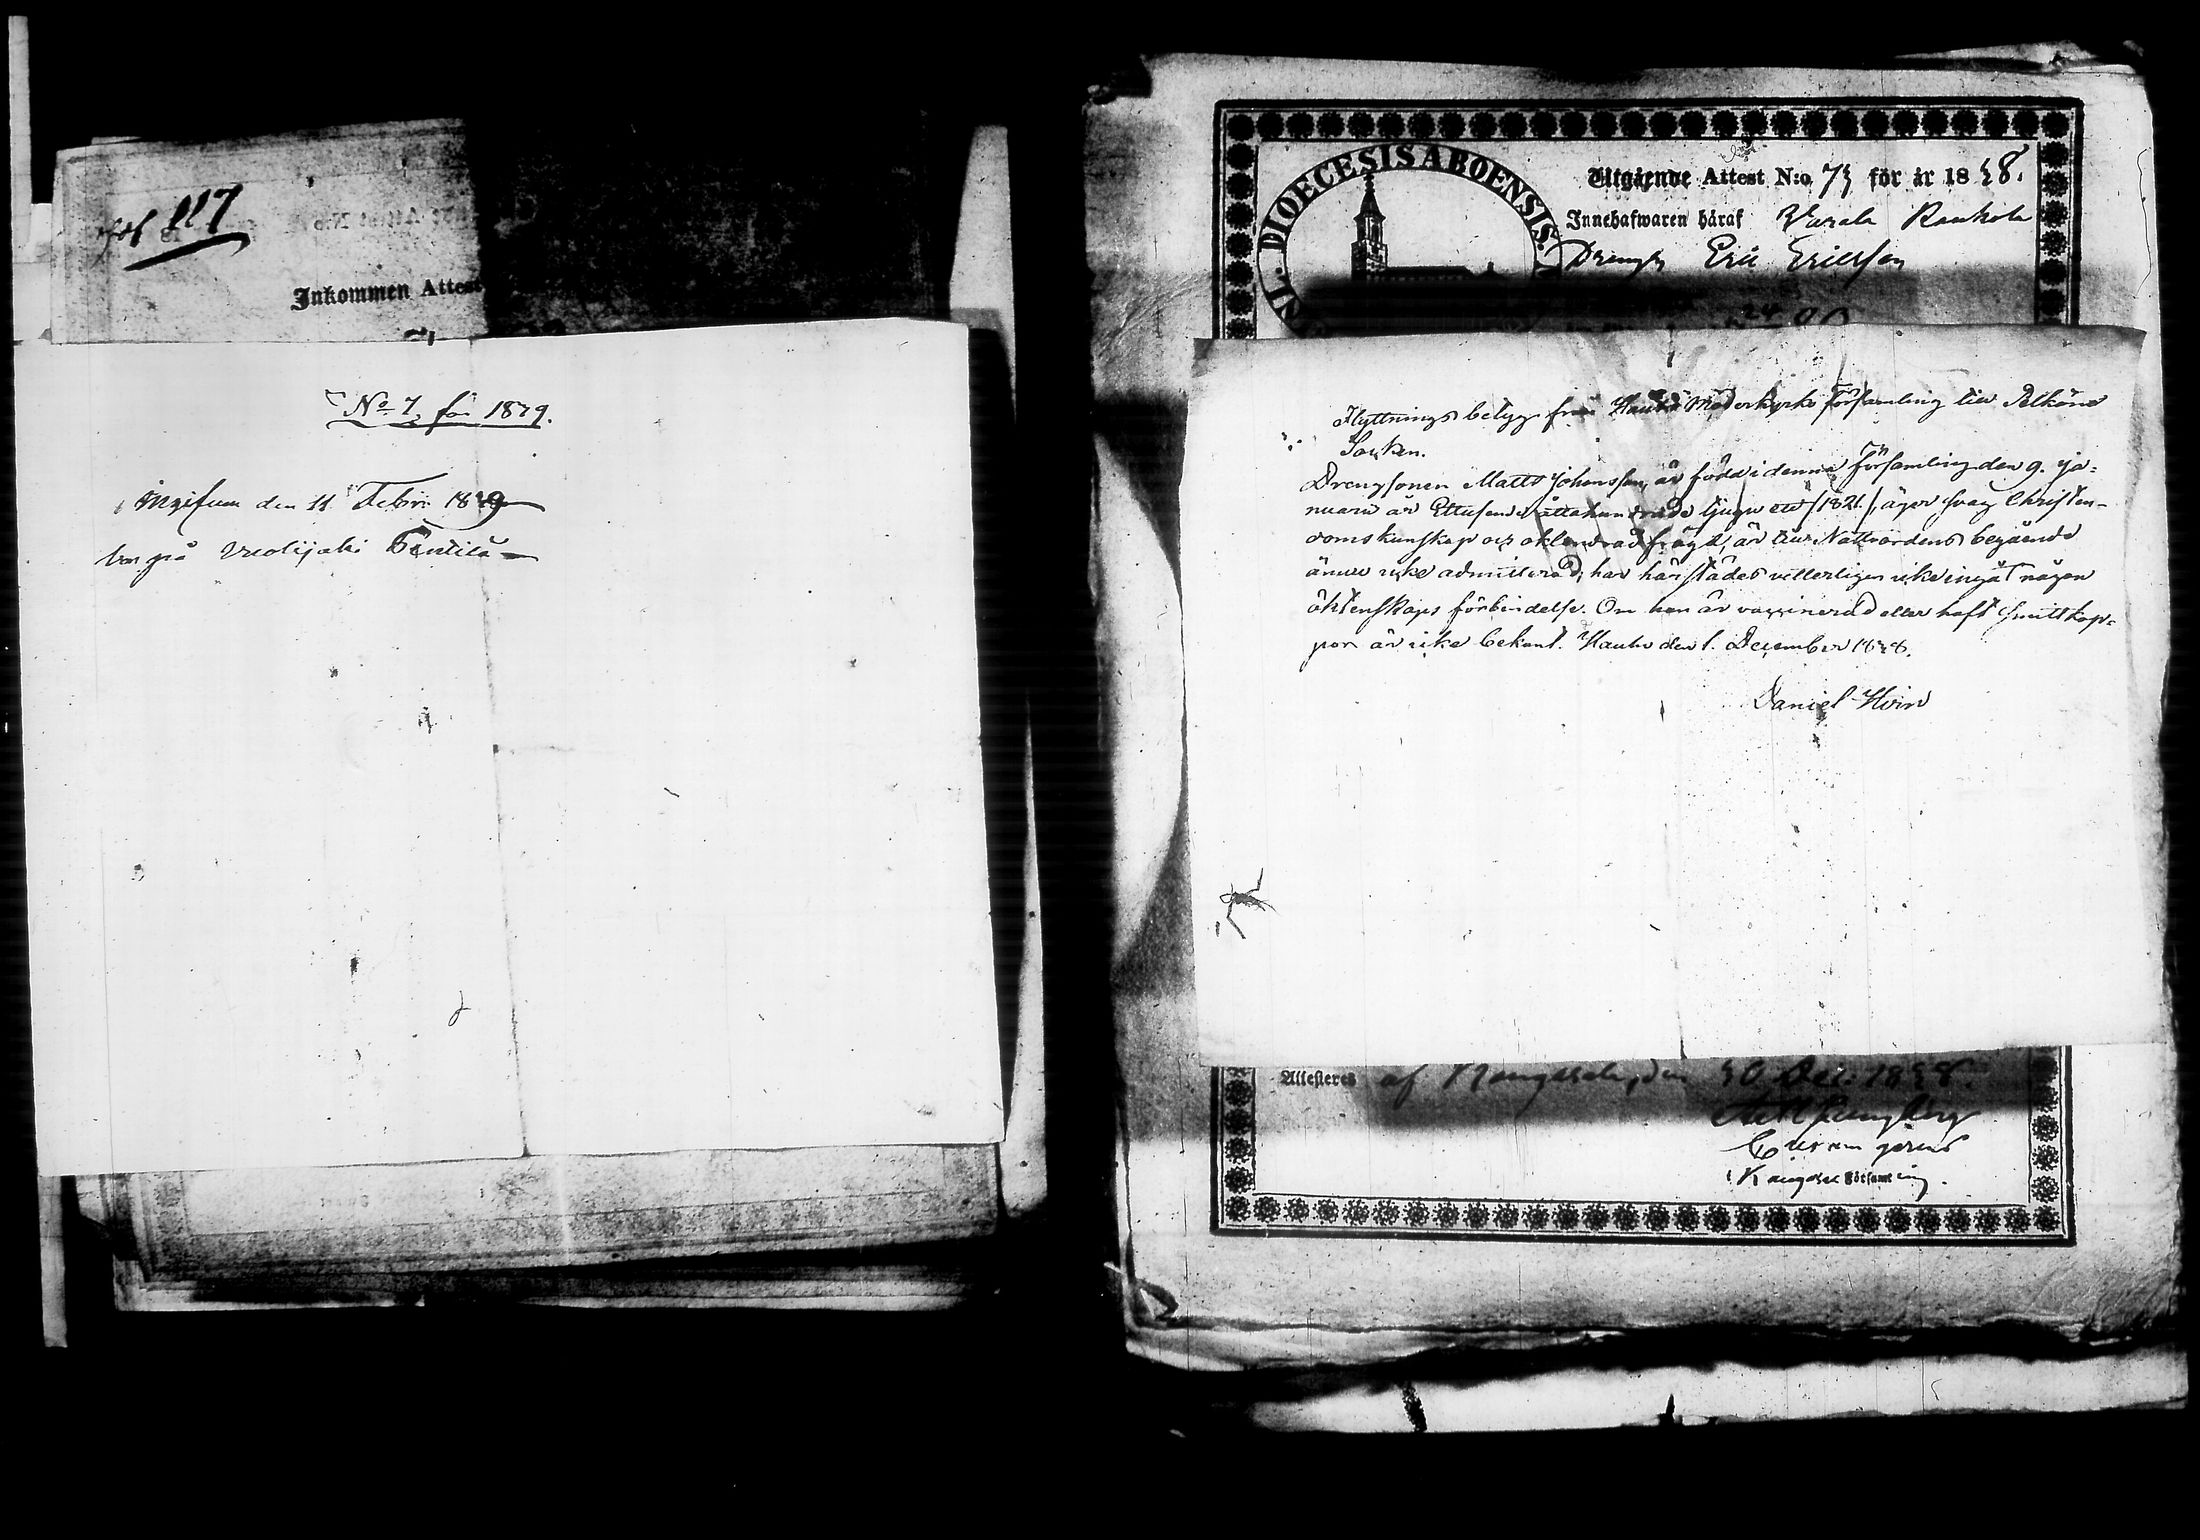 117
Inkommen Attest
No 7, för 1839.
Ingifven den 11 Febr: 1839
bor på
DIOECESIS ABOENSIS.
Utgående Attest N:o 73 för år 1838.
Innehafwaren häraf
Drengen Eric Ericsson
Flyttnings betyg från Hauho Moderkyrko Församling till Pelkäne
Socken.
Drengsonen Matts Johansson, är född i denna Församling den 9. Ja-
nuarii år Ettusende åttahundrade tjugu ett /1821./, äger svag Christen-
doms kunskap och oklandrad frägd, är till Nattvardens begående
ännu icke admitterad; har härstädes vetterligen icke ingåt någon
äktenskaps förbindelse. Om han är vaccinerad eller haft Smittkop-
por är icke bekant. Hauho den 1. December 1838.
Daniel Hirn
Attesteras af Kangasala, den 30 Dec: 1838.
Församling.